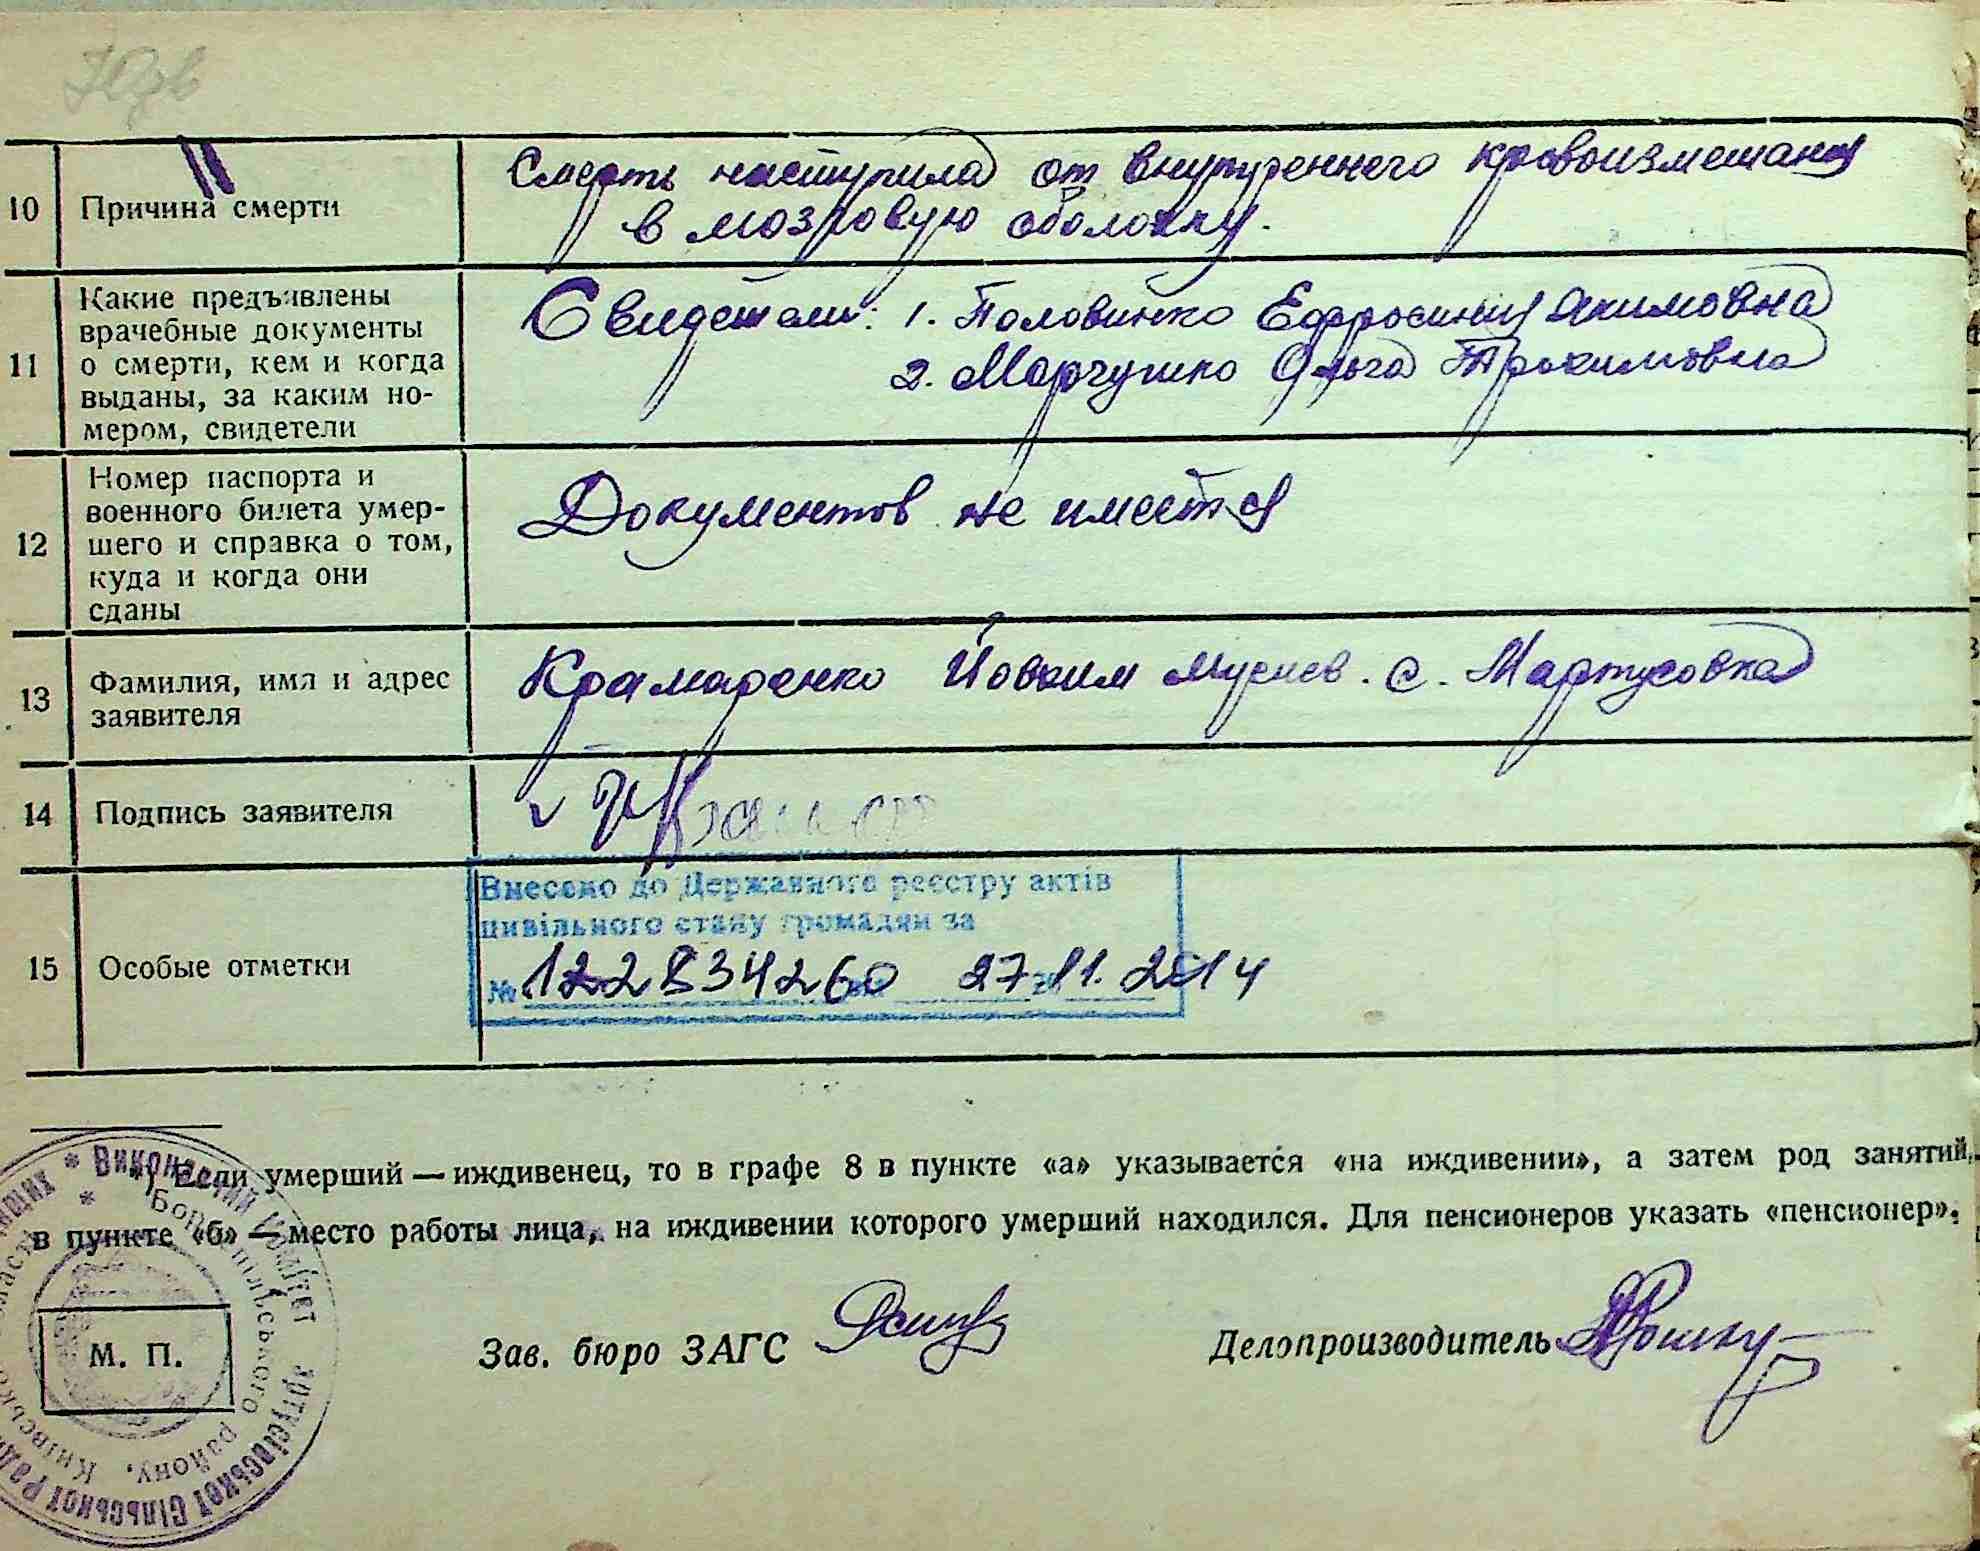 10
Причина смерти
Смерть наступила от внутреннего кровоизмешания
в мозговую оболочку.
11
Какие предъявлены
врачебные документы
о смерти, кем и когда
выданы, за каким но-
мером, свидетели
Свидетели: 1. Половинко Ефросиния Акимовна
2. Марчушко Ольга Трохимовна
12
Номер паспорта и
военного билета умер-
шего и справка о том,
куда и когда они
сданы
Документов не имеется
13
Фамилия, имя и адрес
заявителя
Крамаренко Йоваким Мусиев. с. Мартусовка
14
Подпись заявителя
15
Особые отметки
Внесено до Державного реєстру актів
цивільного стану громадян за
№ 122834260 27.11.2014
*) Если умерший — иждивенец, то в графе 8 в пункте «а» указывается «на иждивении», а затем род занятий,
в пункте «б» — место работы лица, на иждивении которого умерший находился. Для пенсионеров указать «пенсионер».
М. П.
Зав. бюро ЗАГС
Делопроизводитель
Виконавчий Комітет
сільської Ради
Бориспільського району, Київської